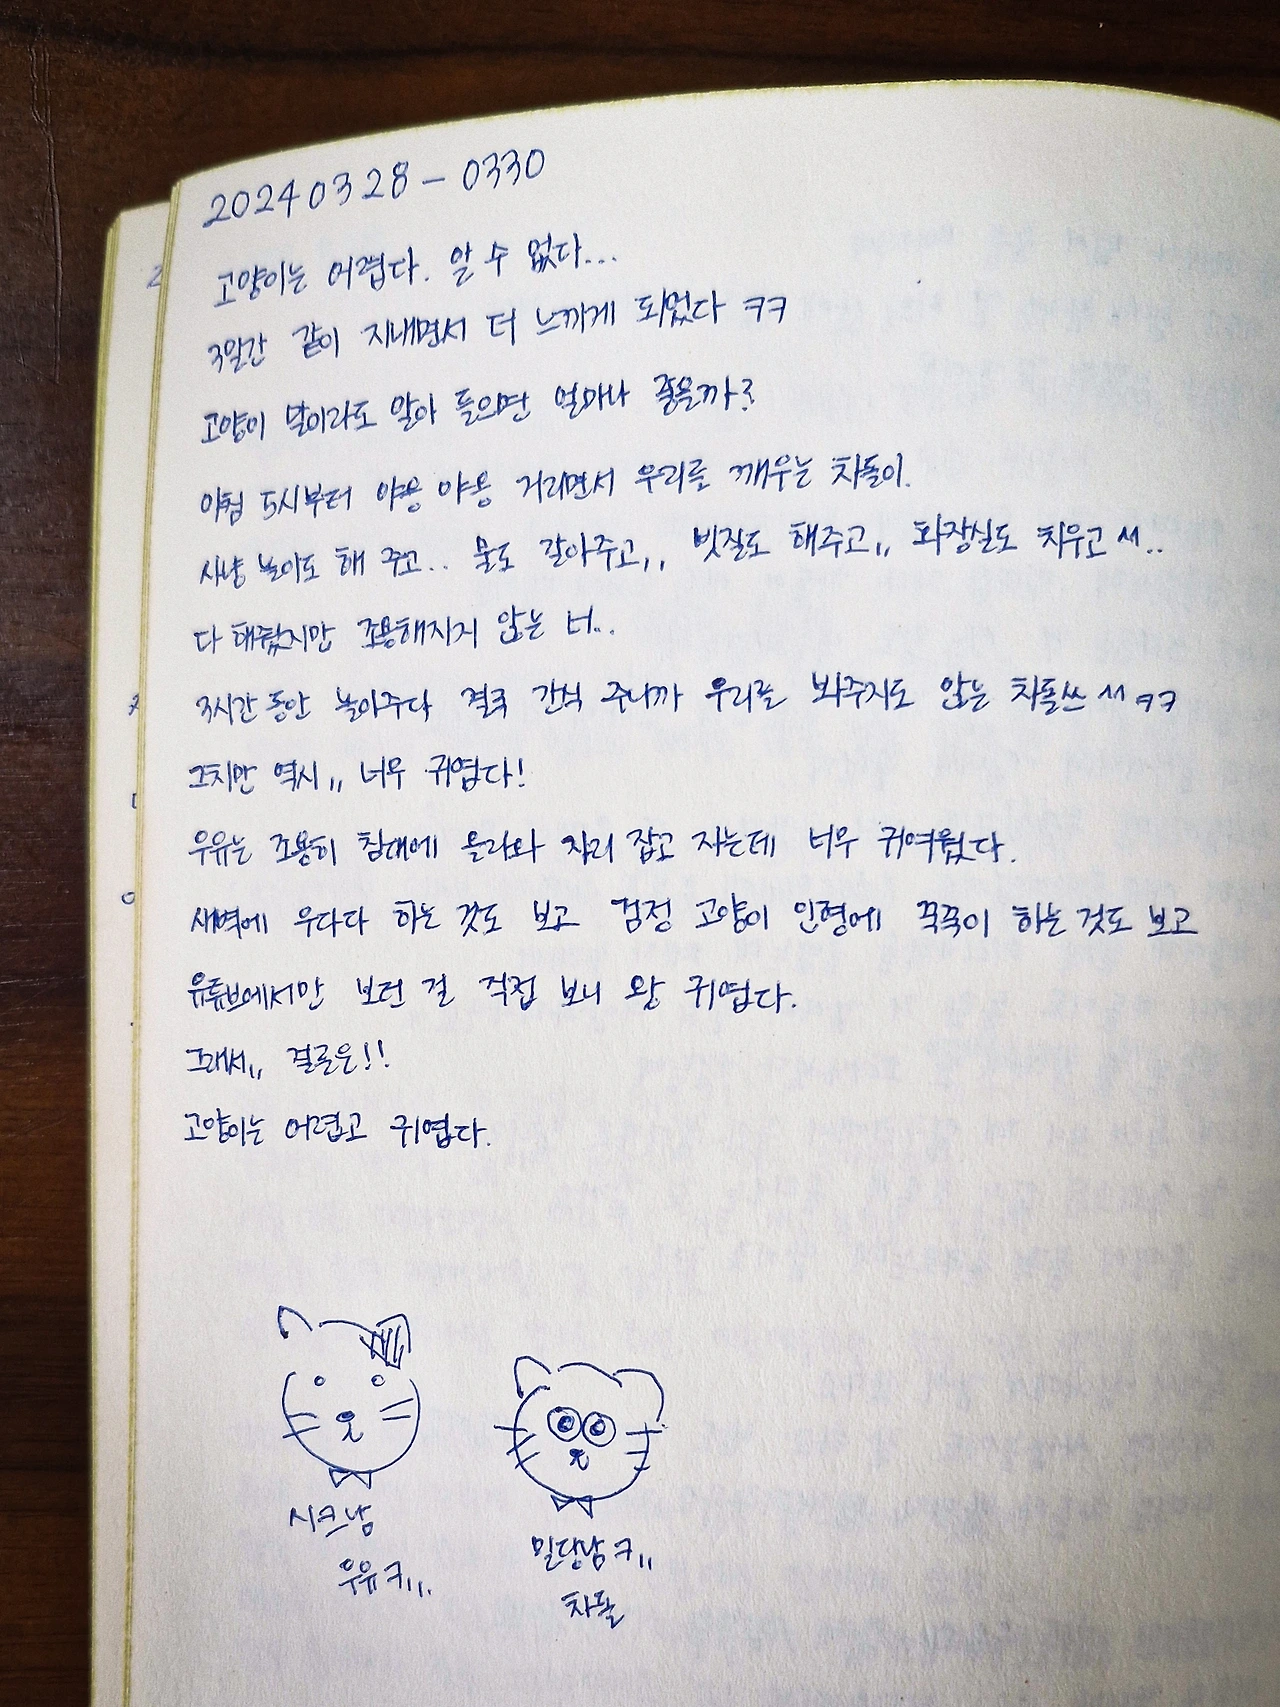 20240328 - 0330
고양이는 어렵다. 알 수 없다...
3일간 같이 지내면서 더 느끼게 되었다 ㅋㅋ
고양이 말이라도 알아 들으면 얼마나 좋을까?
아침 5시부터 야옹 야옹 거리면서 우리를 깨우는 차돌이.
사냥 놀이도 해 주고.. 물도 갈아주고,, 빗질도 해주고,, 화장실도 치우고 ㅆ..
다 해줬지만 조용해지지 않는 너..
3시간 동안 놀아주다 결국 간식 주니까 우리를 봐주지도 않는 차돌쓰 ㅆ ㅋㅋ
그치만 역시,, 너무 귀엽다!
우유는 조용히 침대에 올라와 자리 잡고 자는데 너무 귀여웠다.
새벽에 우다다 하는 것도 보고 검정 고양이 인형에 꾹꾹이 하는 것도 보고
유튜브에서만 보던 걸 직접 보니 왕 귀엽다.
그래서,, 결론은!!
고양이는 어렵고 귀엽다.
시크남
우유 ㅋ,,.
밀당남 ㅋ,,
차돌